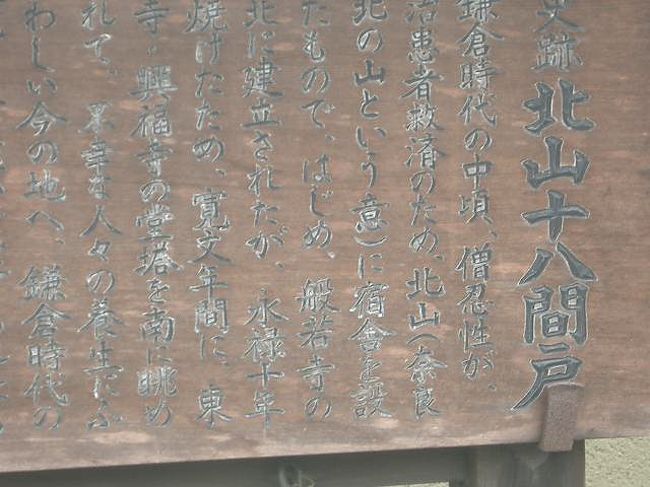 史跡 北山十八間戸
鎌倉時代の中頃、僧忍性が、
治患者救済のため、北山(奈良
北の山という意)に宿舎を設
たもので、はじめ、般若寺の
北に建立されたが、永禄十年
焼けたため、寛文年間に、東
寺・興福寺の堂塔を南に眺め
れて、不幸な人々の養生にふ
わしい今の地へ、鎌倉時代の